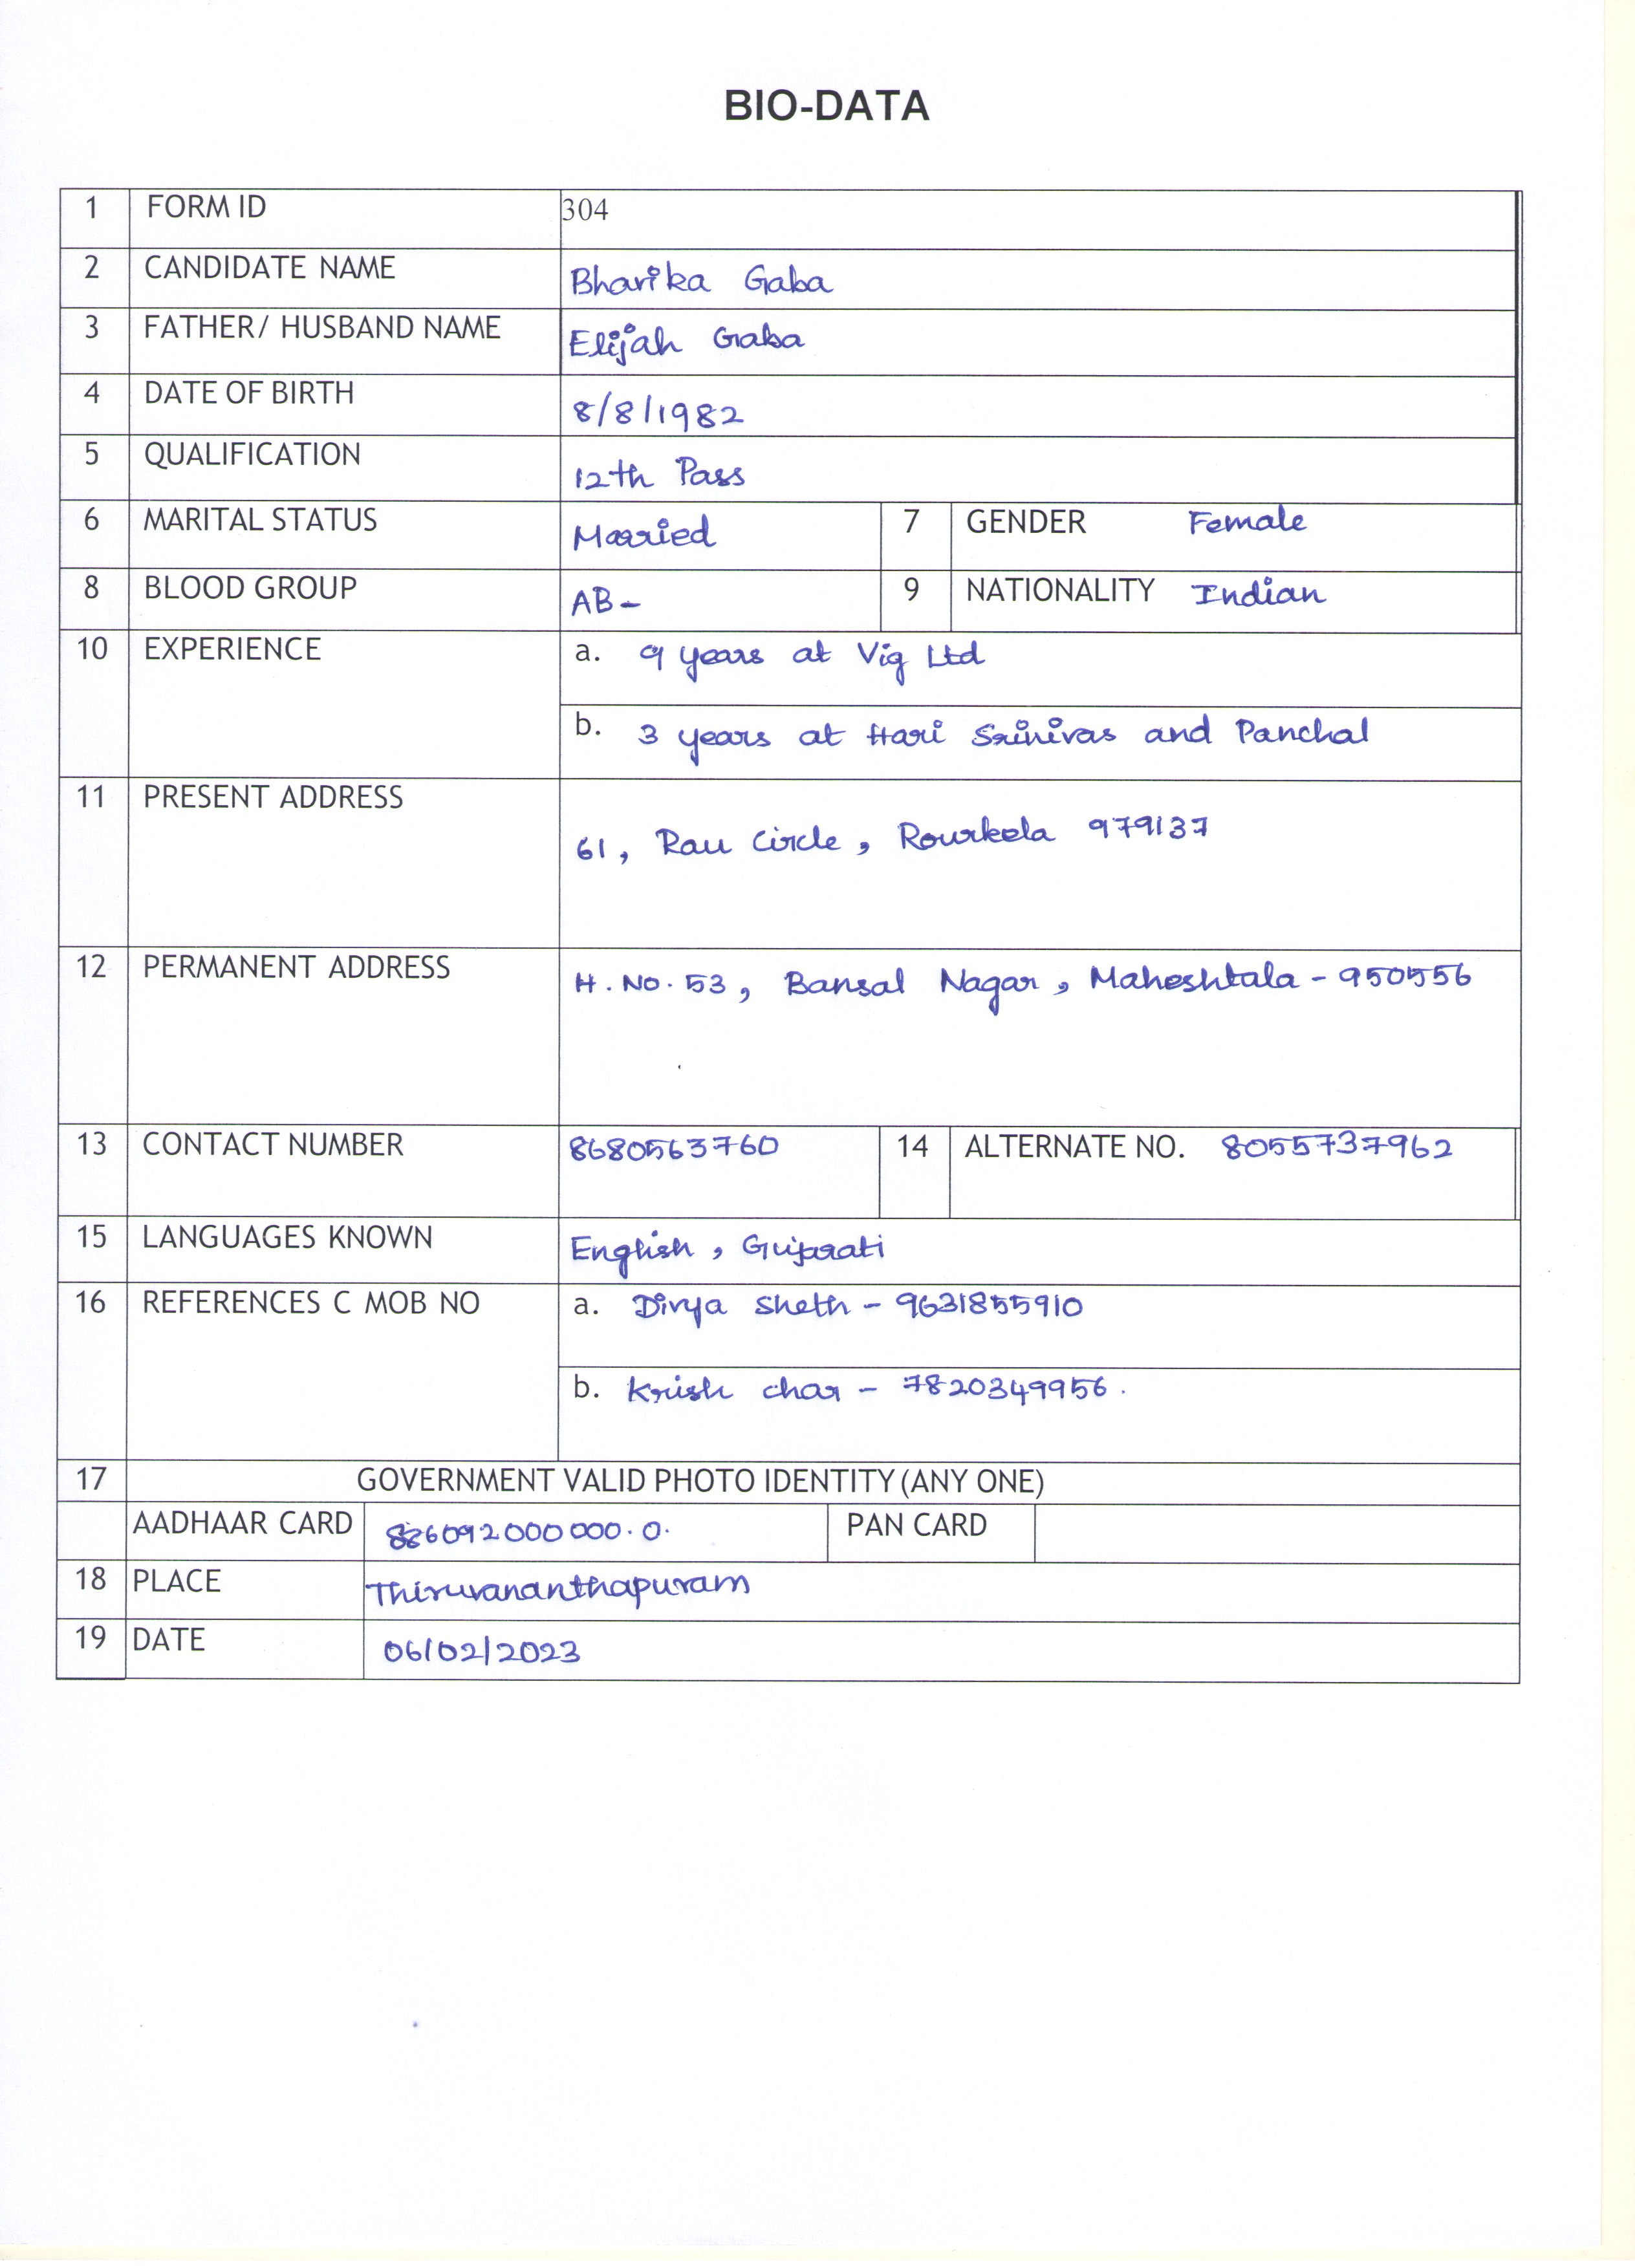 BIO-DATA
1 FORM ID 304
2 CANDIDATE NAME Bharika Gaba
3 FATHER/ HUSBAND NAME Elijah Gaba
4 DATE OF BIRTH 8/8/1982
5 QUALIFICATION 12th Pass
6 MARITAL STATUS Married 7 GENDER Female
8 BLOOD GROUP AB- 9 NATIONALITY Indian
10 EXPERIENCE a. 9 years at Vig Ltd
b. 3 years at Hari Srinivas and Panchal
11 PRESENT ADDRESS
61, Rau Circle, Rourkela 979137
12 PERMANENT ADDRESS H. No. 53, Bansal Nagar, Maheshtala - 950556
13 CONTACT NUMBER 8680563760 14 ALTERNATE NO. 8055737962
15 LANGUAGES KNOWN English, Gujarati
16 REFERENCES C MOB NO a. Divya Sheth - 9631855910
b. Krish char - 7820349956.
17 GOVERNMENT VALID PHOTO IDENTITY (ANY ONE)
AADHAAR CARD 886092000000.0. PAN CARD
18 PLACE Thiruvananthapuram
19 DATE 06/02/2023